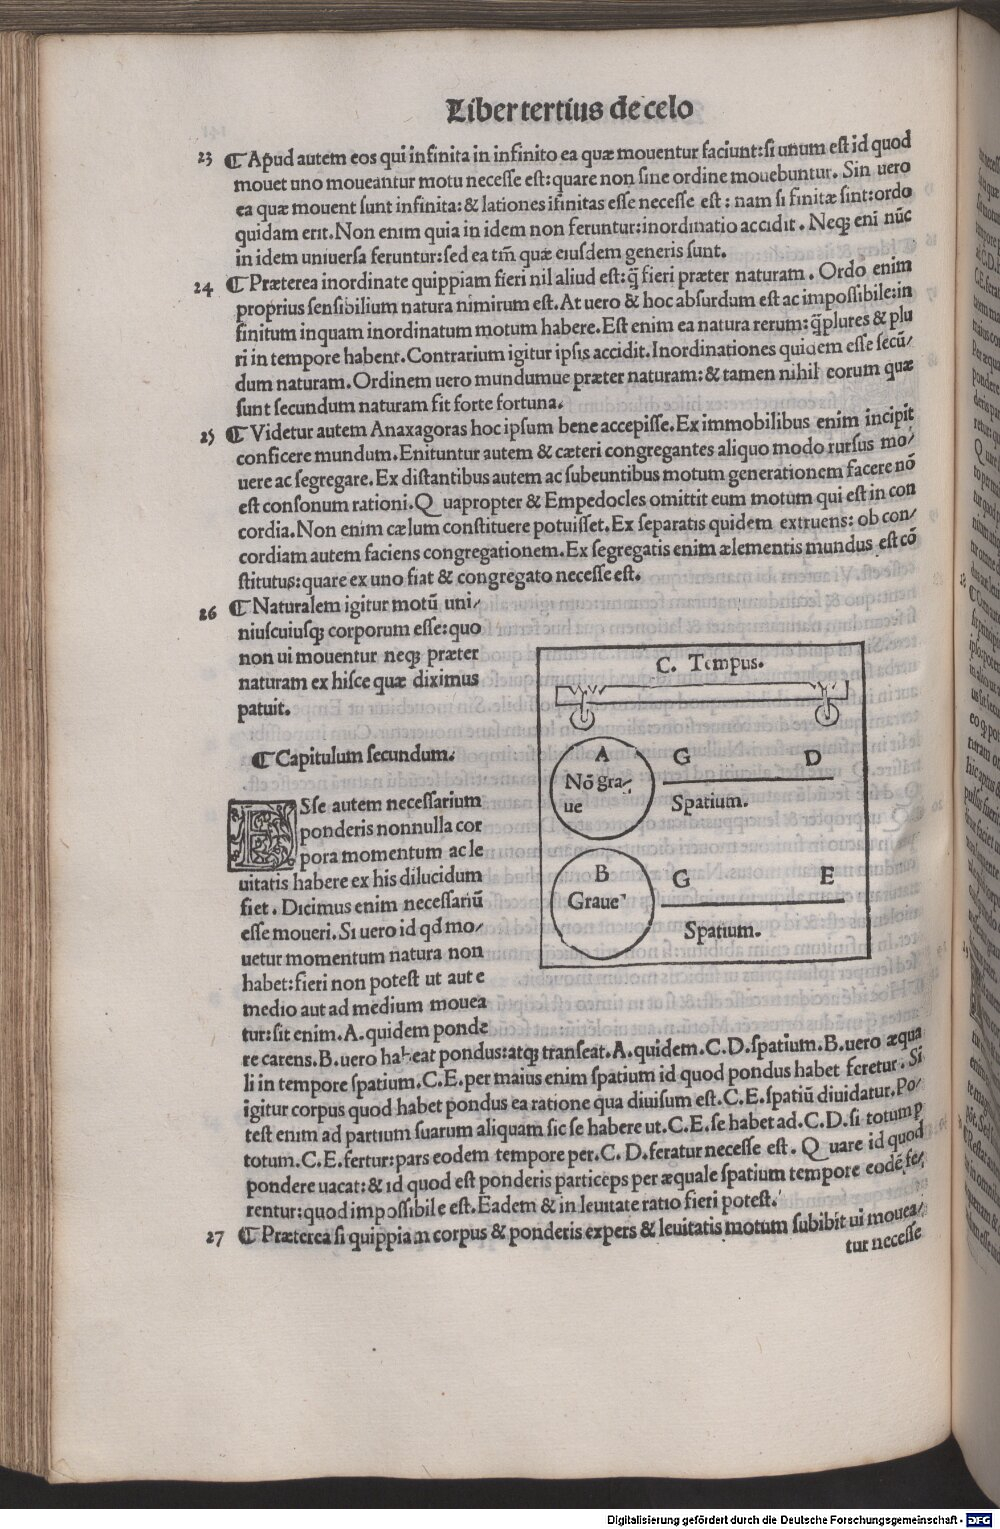 Liber tertius de celo
23 ¶ Apud autem eos qui infinita in infinito ea quæ mouentur faciunt: si unum est id quod
mouet uno moueantur motu necesse est: quare non sine ordine mouebuntur. Sin uero
ea quæ mouent sunt infinita: & lationes ifinitas esse necesse est: nam si finitæ sint: ordo
quidam erit. Non enim quia in idem non feruntur: inordinatio accidit. Neqꝫ eni nūc
in idem uniuersa feruntur: sed ea tm̄ quæ eiusdem generis sunt.
24 ¶ Præterea inordinate quippiam fieri nil aliud est: q̄ fieri præter naturam. Ordo enim
proprius sensibilium natura nimirum est. At uero & hoc absurdum est ac impossibile: in
finitum inquam inordinatum motum habere. Est enim ea natura rerum: q̄ plures & plu
ri in tempore habent. Contrarium igitur ipsis accidit. Inordinationes quidem esse secū/
dum naturam. Ordinem uero mundumue præter naturam: & tamen nihil eorum quæ
sunt secundum naturam fit forte fortuna.
25 ¶ Videtur autem Anaxagoras hoc ipsum bene accepisse. Ex immobilibus enim incipit
conficere mundum. Enituntur autem & cæteri congregantes aliquo modo rursus mo/
uere ac segregare. Ex distantibus autem ac subeuntibus motum generationem facere nō
est consonum rationi. Quapropter & Empedocles omittit eum motum qui est in con
cordia. Non enim cælum constituere potuisset. Ex separatis quidem extruens: ob con/
cordiam autem faciens congregationem. Ex segregatis enim ælementis mundus est cō
stitutus: quare ex uno fiat & congregato necesse est.
26 ¶ Naturalem igitur motū uni/
niuscuiusqꝫ corporum esse: quo
non ui mouentur neqꝫ præter
naturam ex hisce quæ diximus
patuit.
¶ Capitulum secundum.
ESse autem necessarium
ponderis nonnulla cor
pora momentum ac le
uitatis habere ex his dilucidum
fiet. Dicimus enim necessariū
esse moueri. Si uero id qd mo/
uetur momentum natura non
habet: fieri non potest ut aut e
medio aut ad medium mouea
tur: sit enim. A. quidem ponde
re carens. B. uero habeat pondus: atqꝫ transeat. A. quidem. C.D. spatium. B. uero æqua
li in tempore spatium. C.E. per maius enim spatium id quod pondus habet feretur. Si
igitur corpus quod habet pondus ea ratione qua diuisum est. C.E. spatiū diuidatur. Po/
test enim ad partium suarum aliquam sic se habere ut. C.E. se habet ad. C.D. si totum p
totum. C.E. fertur: pars eodem tempore per. C. D. feratur necesse est. Quare id quod
pondere uacat: & id quod est ponderis particeps per æquale spatium tempore eodē fe/
rentur: quod impossibile est. Eadem & in leuitate ratio fieri potest.
27 ¶ Præterea si quippiam corpus & ponderis expers & leuitatis motum subibit ui mouea/
tur necesse
C. Tempus.
A
Nō gra/
ue
G D
Spatium.
B
Graue
G E
Spatium.
Digitalisierung gefördert durch die Deutsche Forschungsgemeinschaft - DFG